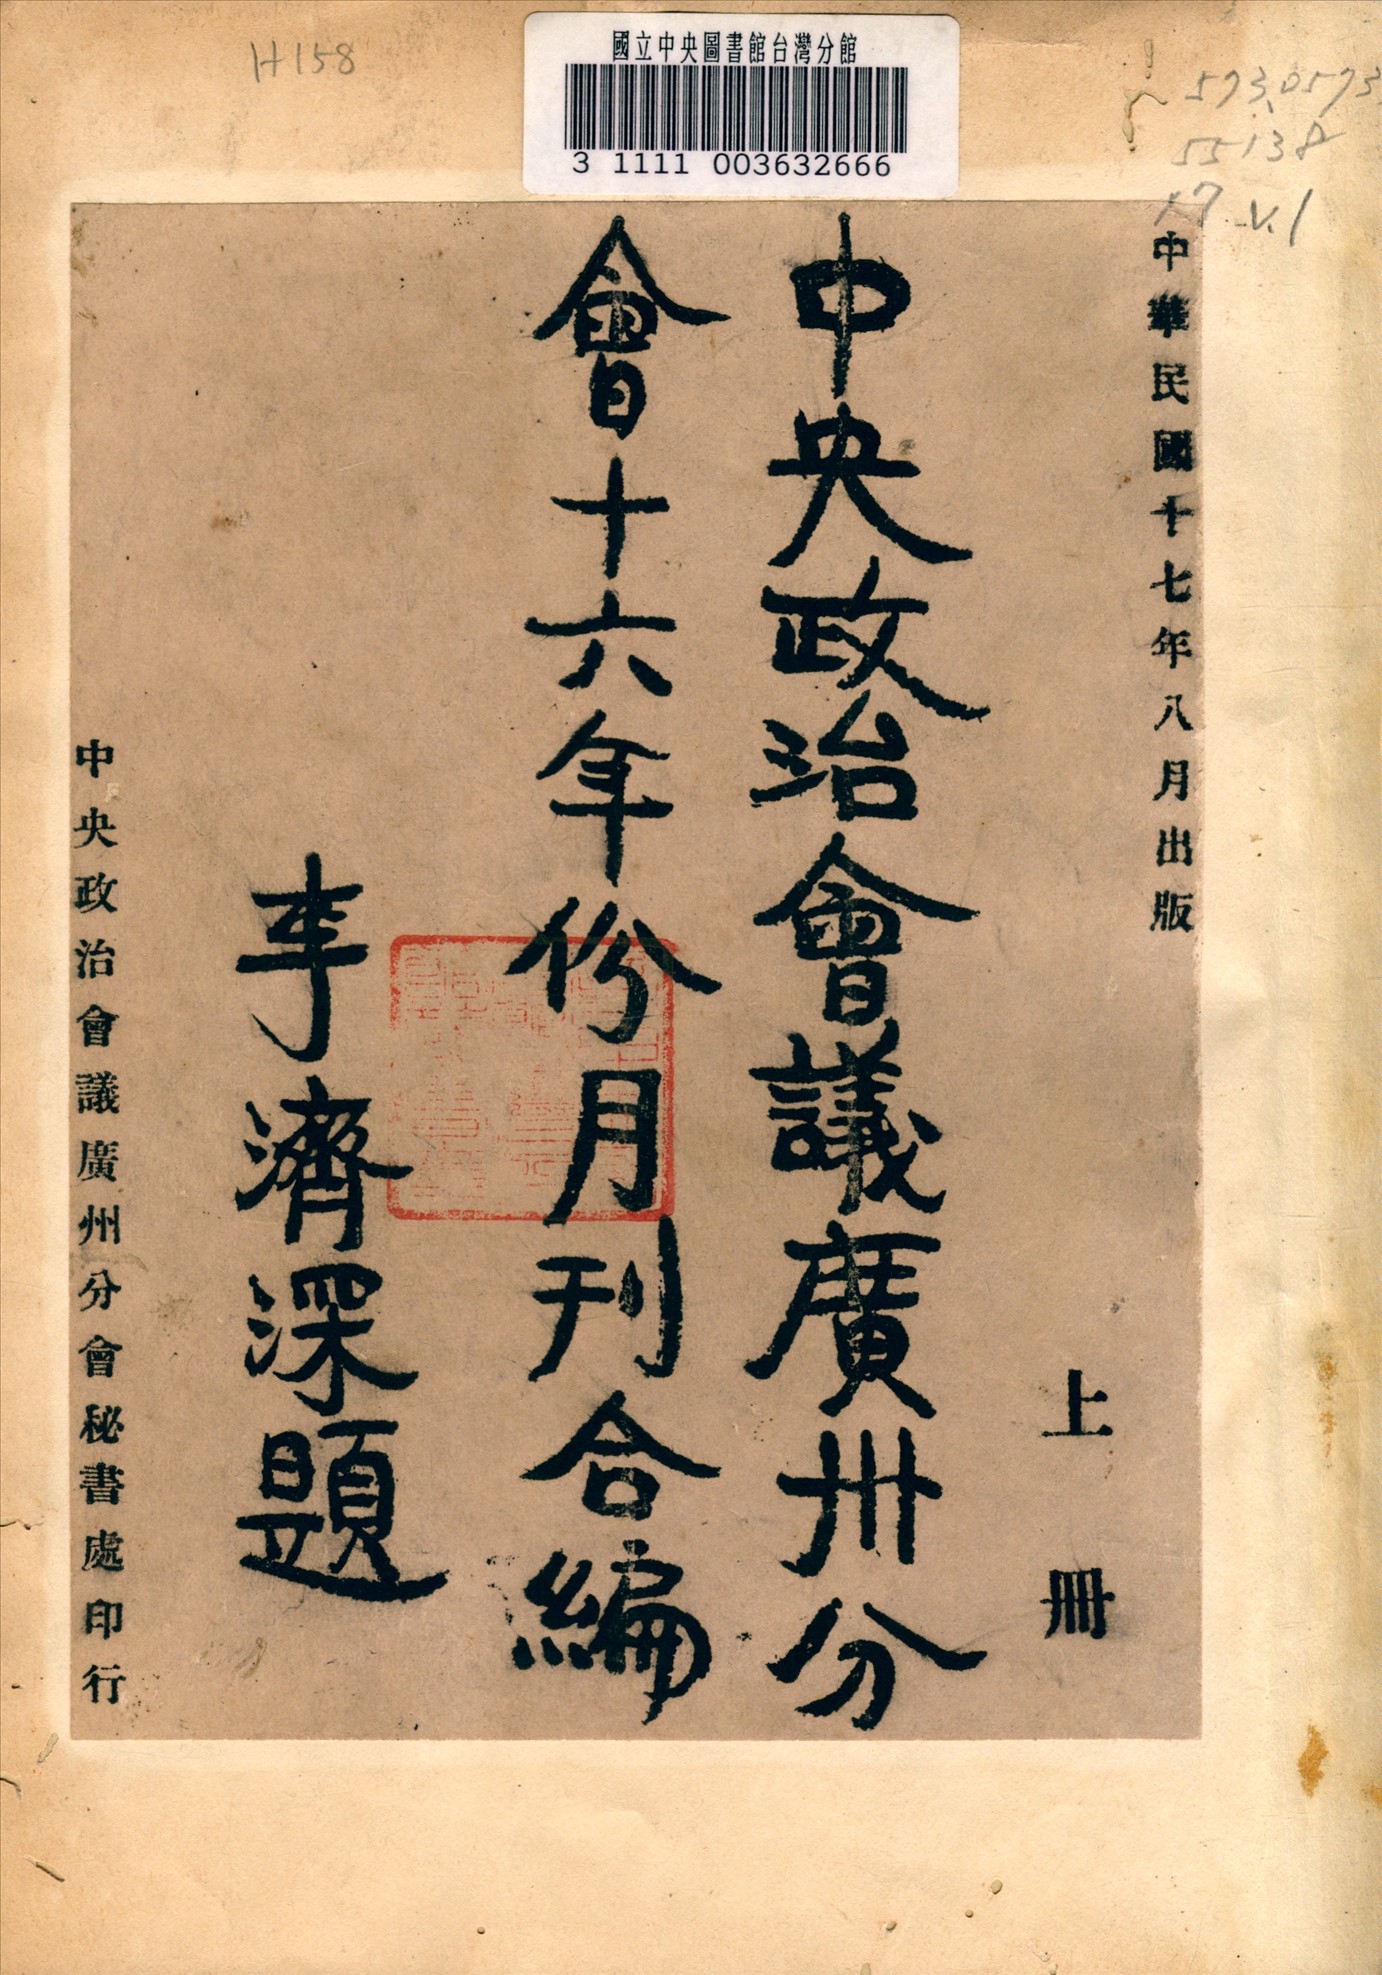 國立中央圖書館台灣分館
3 1111 003632666
H158
573.0573
55138
17 v.1
中華民國十七年八月出版
上冊
中央政治會議廣州分
會十六年份月刊合編
李濟深題
中央政治會議廣州分會秘書處印行